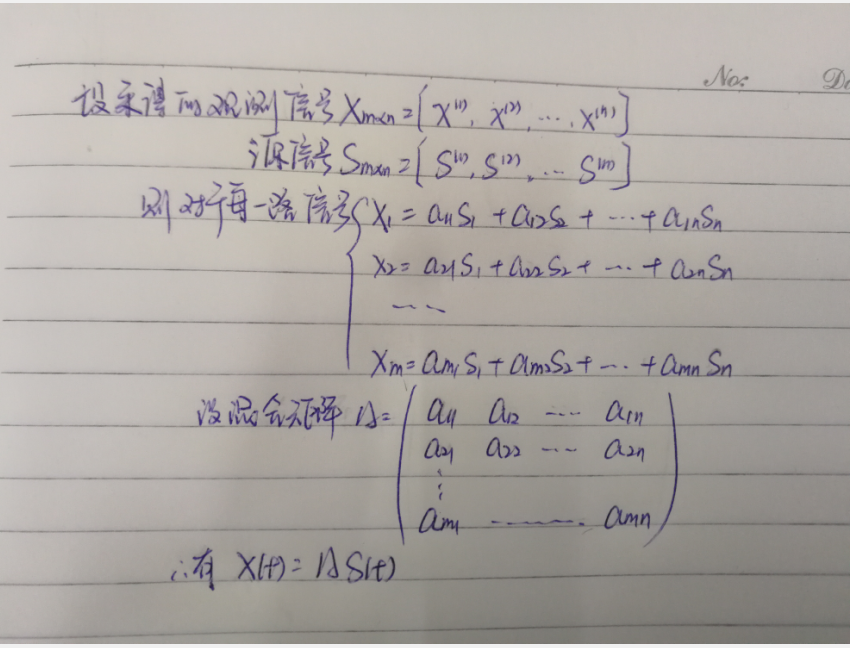 No: Da
设采得的观测信号 Xm×n = [ X⁽¹⁾, X⁽²⁾, ..., X⁽ⁿ⁾ ]
源信号 Sm×n = [ S⁽¹⁾, S⁽²⁾, ... S⁽ⁿ⁾ ]
则对于每一路信号 { X₁ = a₁₁S₁ + a₁₂S₂ + ... + a₁nSn
X₂ = a₂₁S₁ + a₂₂S₂ + ... + a₂nSn
......
Xm = am₁S₁ + am₂S₂ + ... + amnSn
设混合矩阵 A = ( a₁₁ a₁₂ ... a₁n
a₂₁ a₂₂ ... a₂n
⋮
am₁ ........ amn )
∴有 X(t) = A S(t)